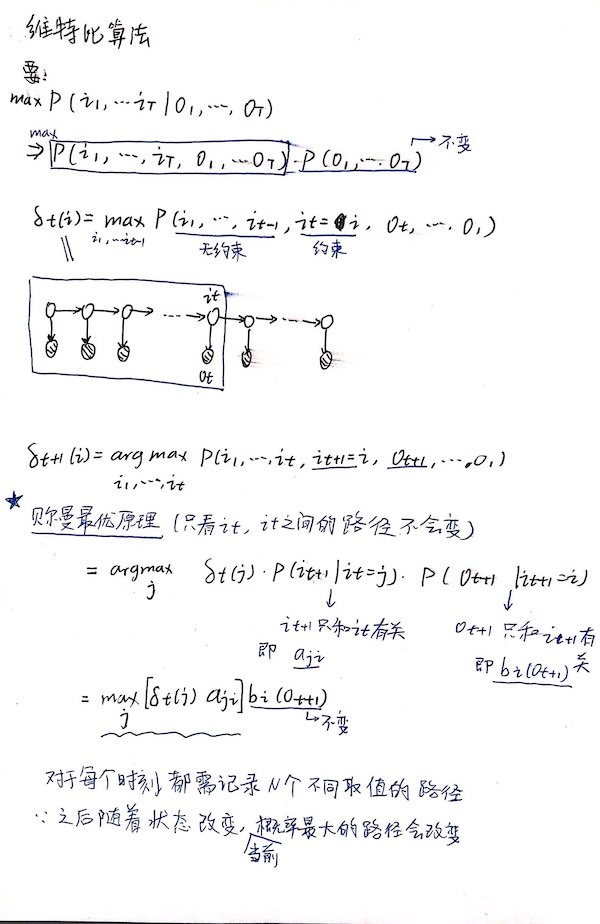 维特比算法
要:
max P(i₁,⋯i_T|O₁,⋯,O_T)
max
⇒ P(i₁,⋯,i_T, O₁,⋯O_T)·P(O₁,⋯O_T) → 不变
δt(i)= max P(i₁,⋯,it-1, it=i, Ot,⋯O₁)
i₁,⋯it-1 无约束 约束
it
Ot
δt+1(i)= argmax P(i₁,⋯,it, it+1=i, Ot+1,⋯,O₁)
i₁,⋯,it
★ 贝尔曼最优原理 (只看it, it之间的路径不会变)
= argmax δt(j)·P(it+1|it=j)·P(Ot+1|it+1=i)
j
it+1只和it有关 Ot+1只和it+1有关
即 aji 即 bi(Ot+1)
= max[δt(j) aji] bi(Ot+1)
j → 不变
对于每个时刻都需记录N个不同取值的路径
∵ 之后随着状态改变, 当前概率最大的路径会改变